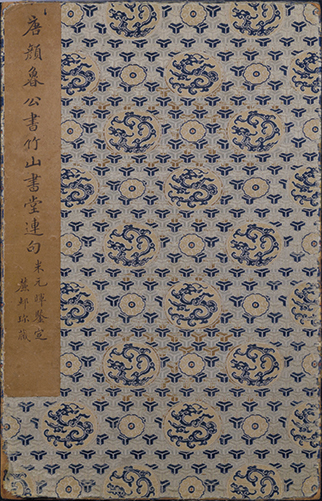 唐顏魯公書竹山書堂連句
米元暉鑒定
麓邨珍藏